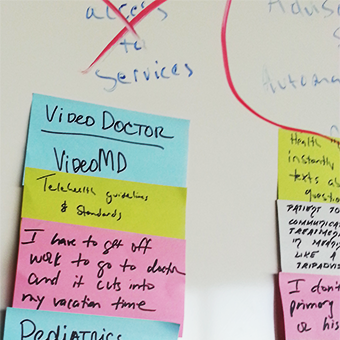 access
to
services
Adviso
Automa
VIDEO DOCTOR
VideoMD
Telehealth guidelines
& Standards
I have to get off
work to go to doctor
and it cuts into
my vacation time
PEDIATRICS
Health "
instantly
texts a
question
PATIENT TO
COMMUNICA
TREATMEN
LIKE A
TRIPADVIS
I don't
primary
or his